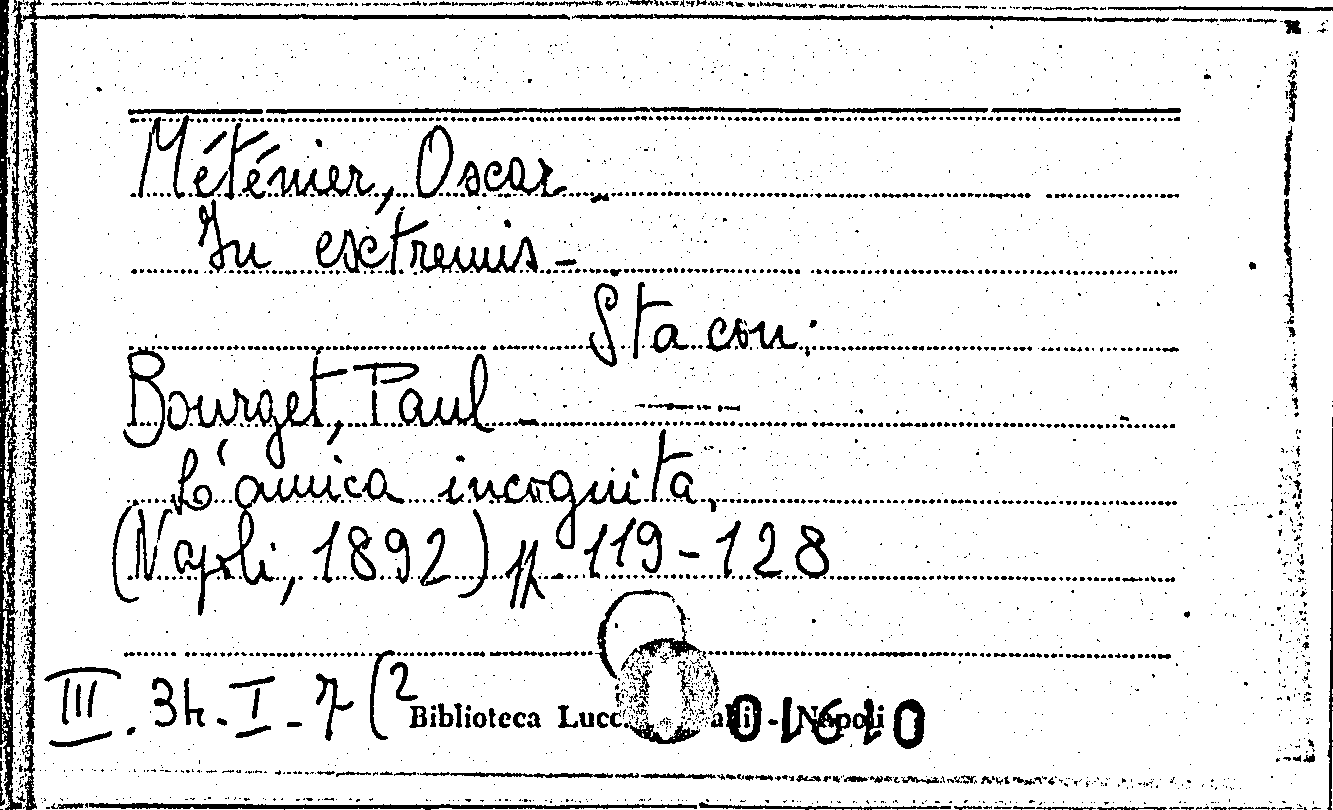 Méténier, Oscar -
In extremis -
Sta con:
Bourget, Paul -
L'amica incognita.
(Napoli, 1892) pp. 119-128
III. 34. I - 7 (2
Biblioteca Lucc - Napoli